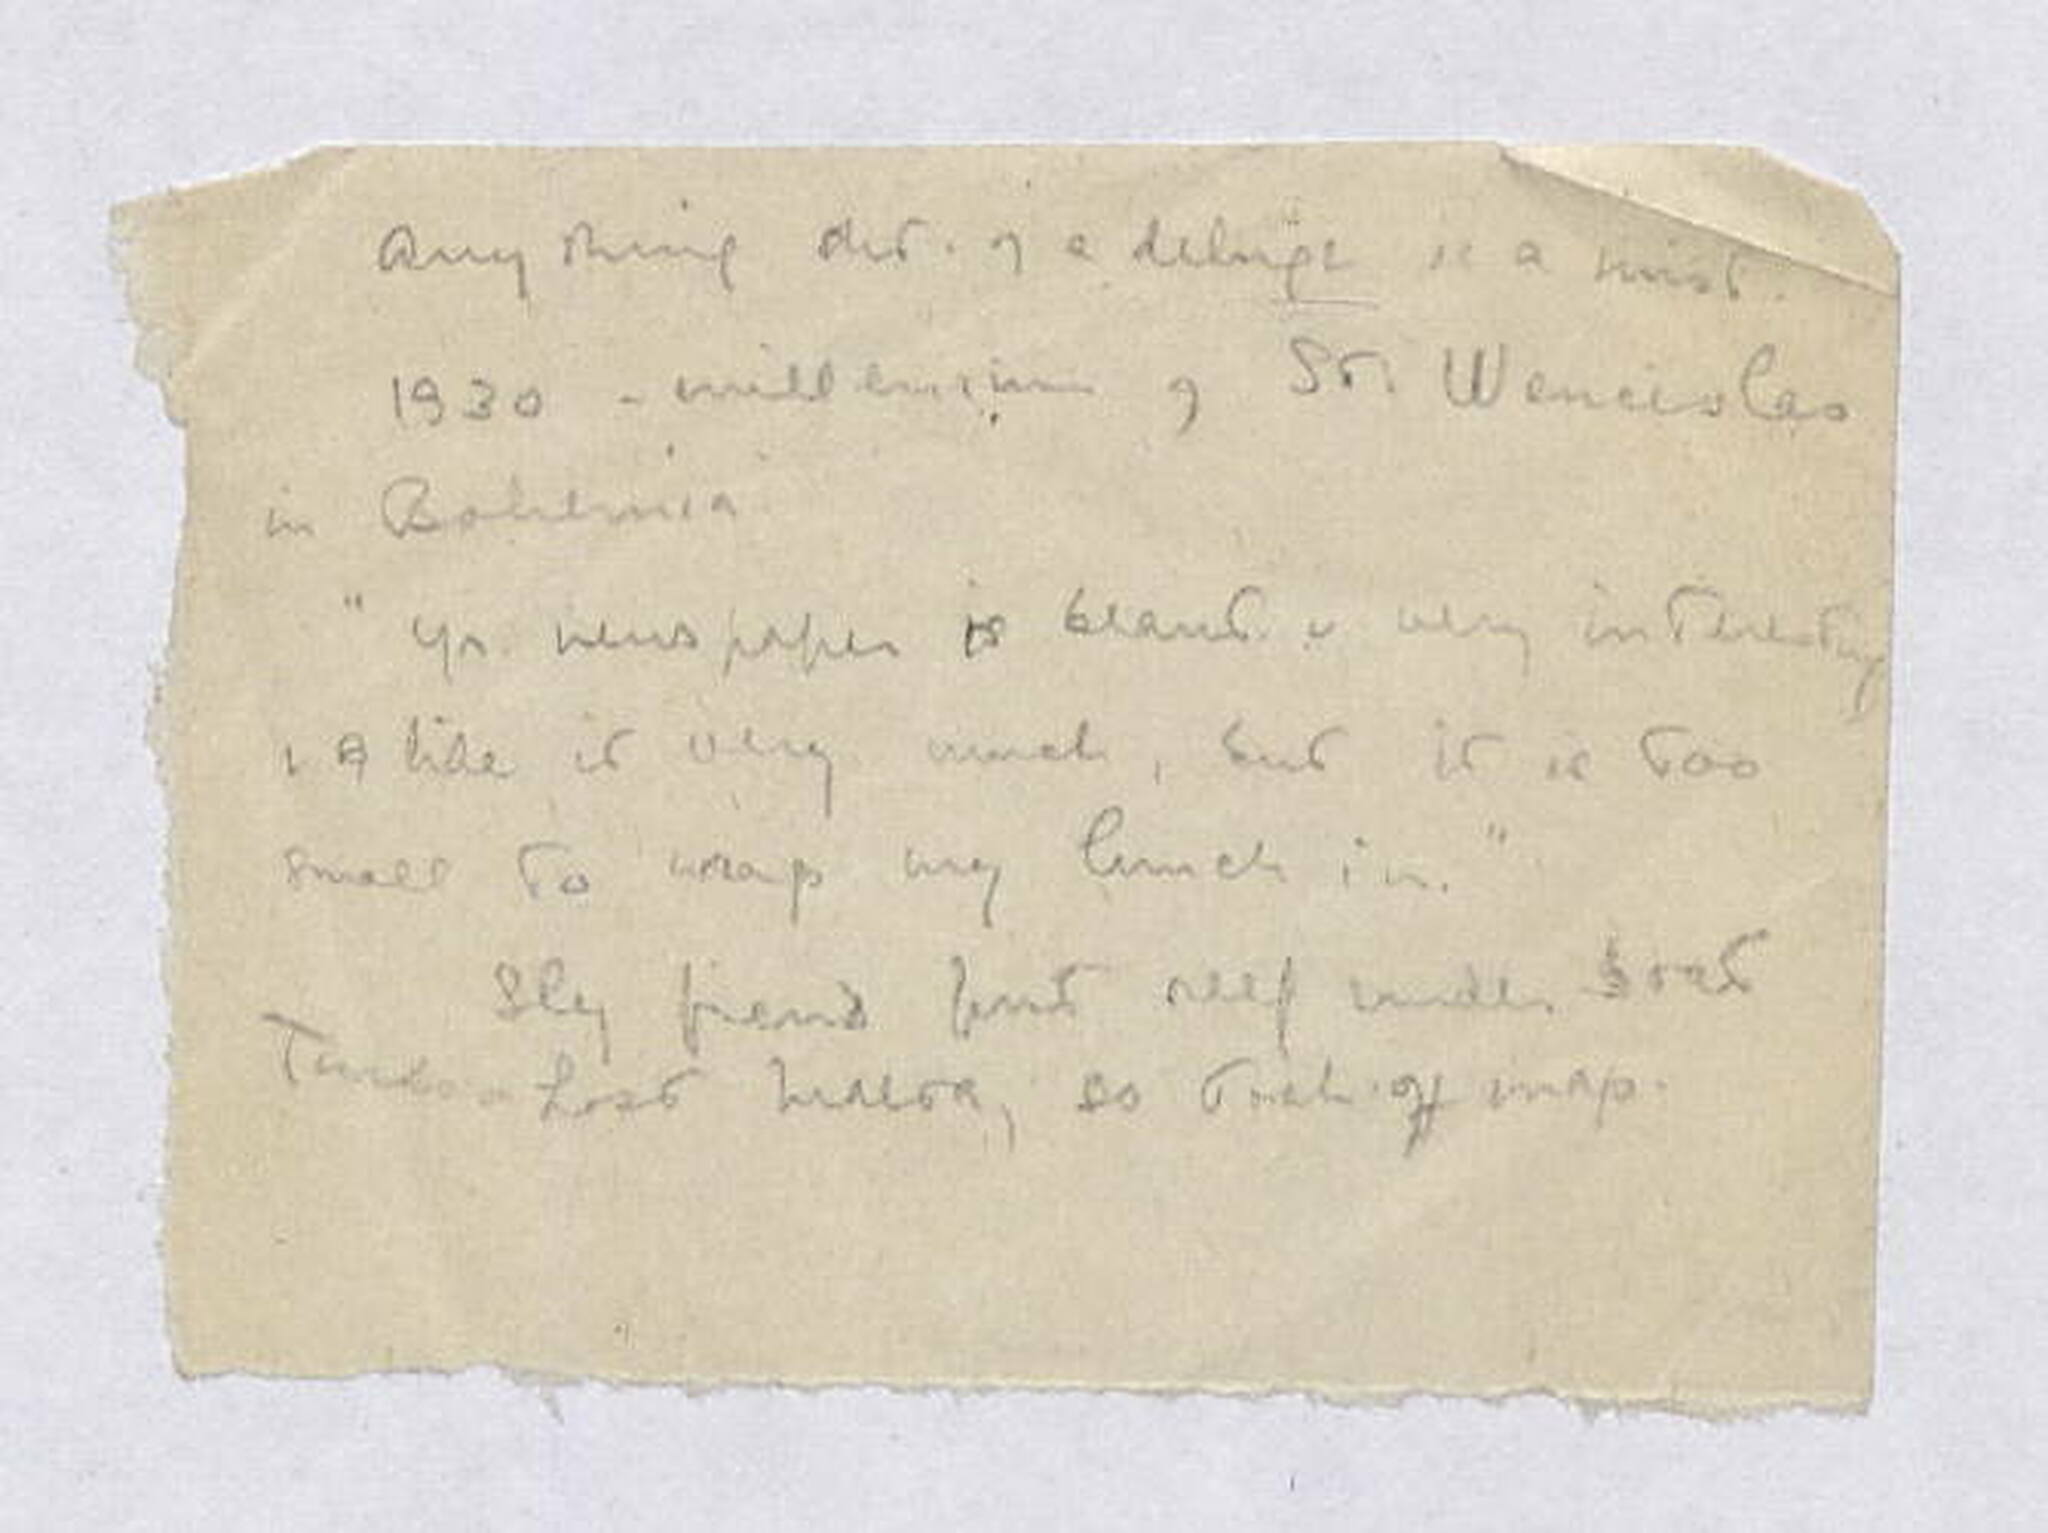 Anything short of a deluge is a mist.
1930 - millennium of St. Wenceslas
in Bohemia
" yr. newspaper is beaut. & very interesting
& I like it very much, but it is too
small to wrap my lunch in."
Sly friend put reef under boat
lost, so took off map.